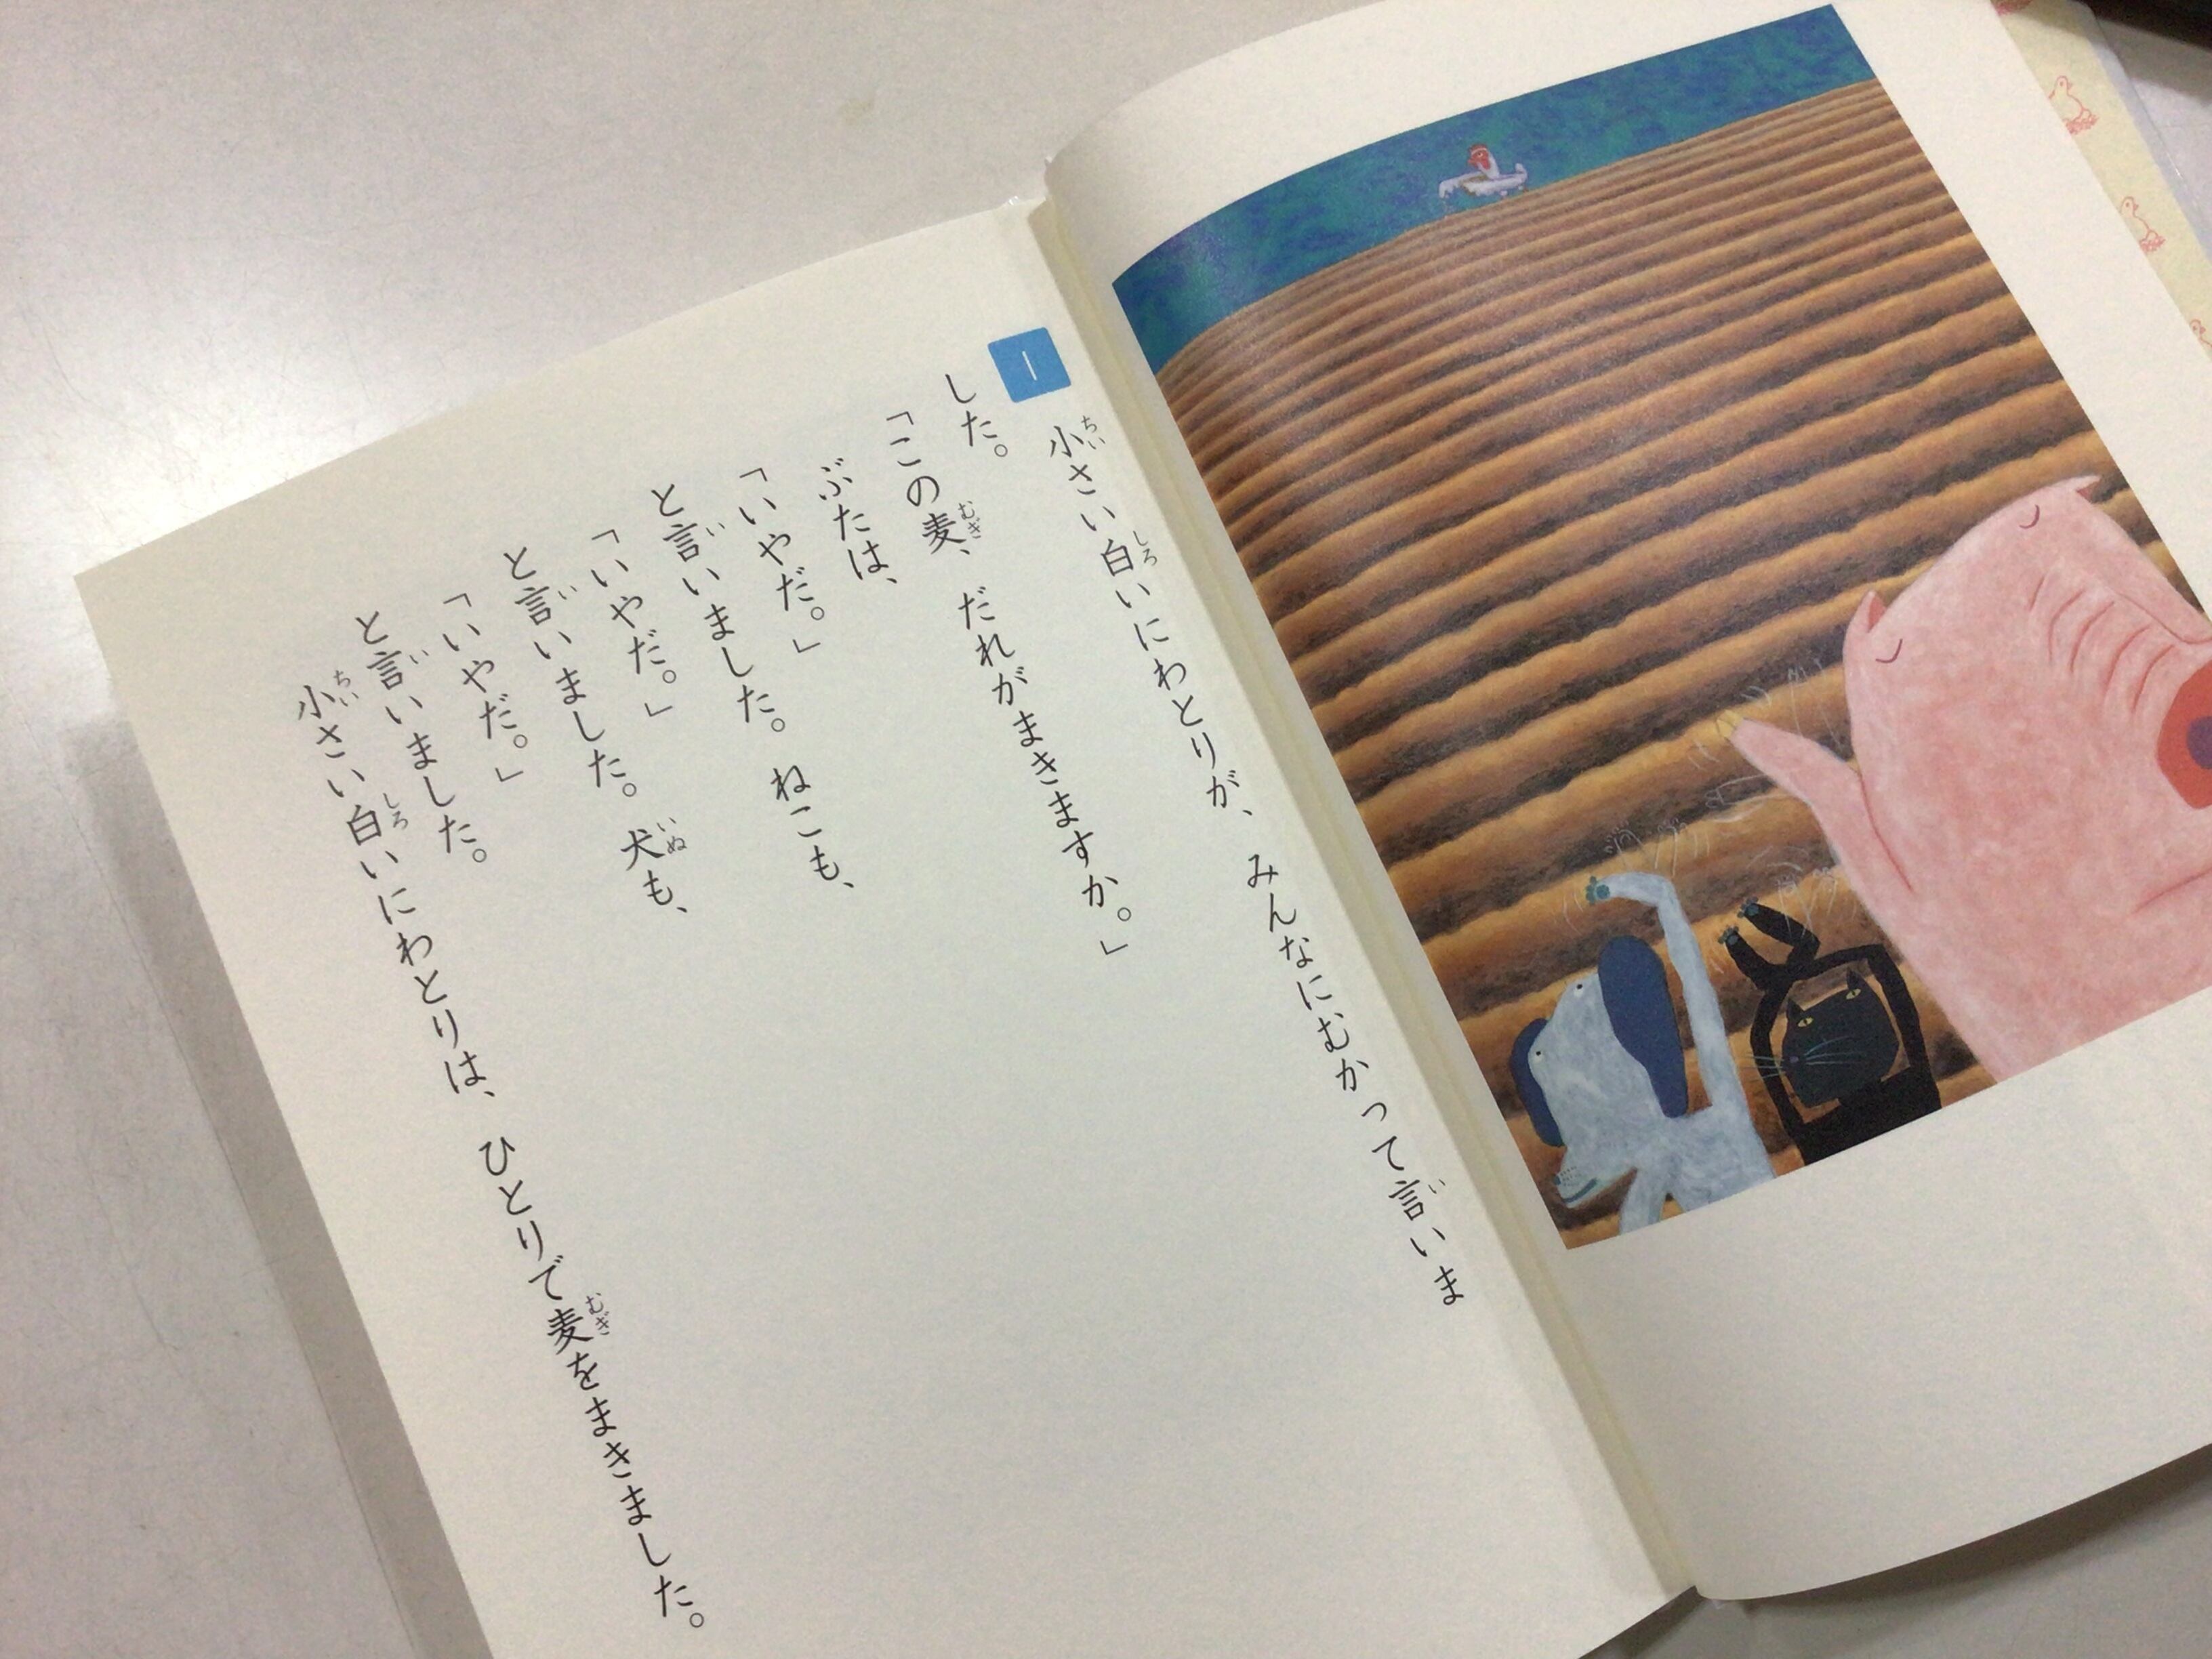 1
小さい白いにわとりが、みんなにむかって言いま
した。
「この麦、だれがまきますか。」
ぶたは、
「いやだ。」
と言いました。ねこも、
「いやだ。」
と言いました。犬も、
「いやだ。」
と言いました。
小さい白いにわとりは、ひとりで麦をまきました。